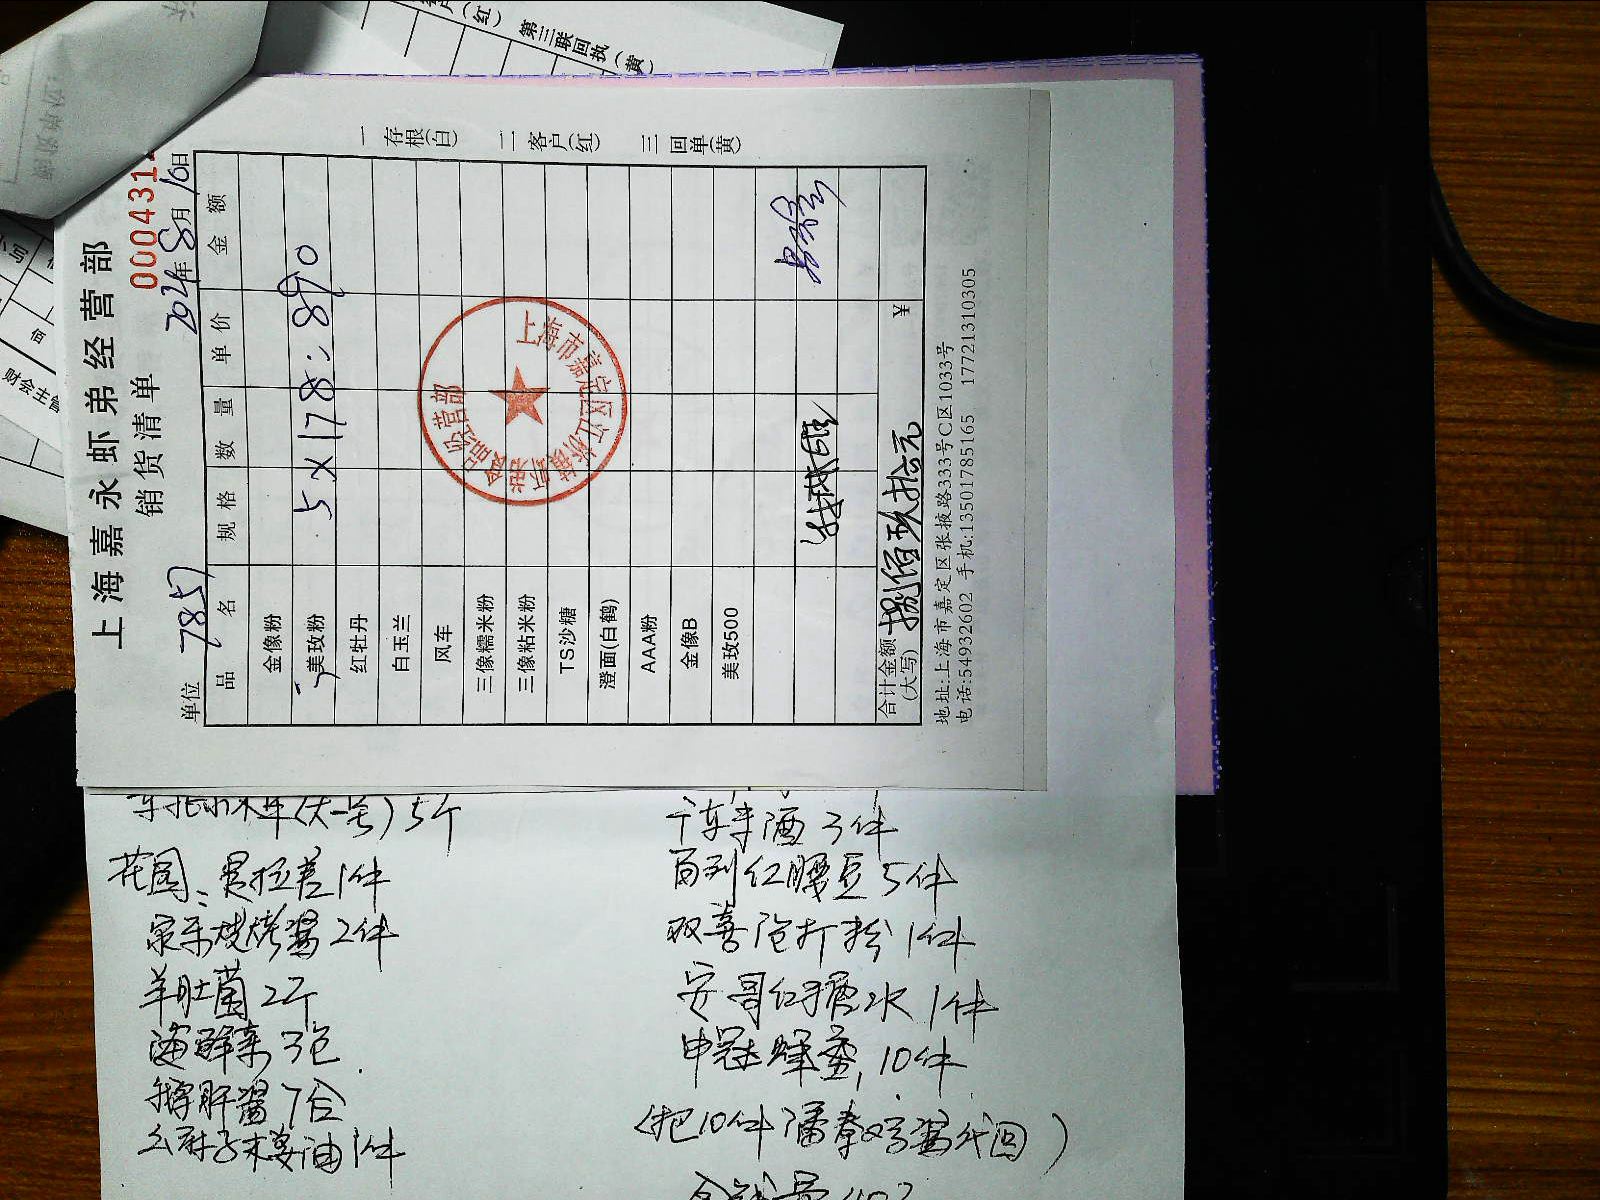 上海嘉永虾弟经营部
销货清单
000431
单位 7857 2024年8月10日
品名 规格 数量 单价 金额
金像粉
美玫粉 5×178=890
红牡丹
白玉兰
风车
三像糯米粉
三像粘米粉
TS沙糖
澄面(白鹤)
AAA粉
金像B
美玫500
合计金额(大写) 捌佰玖拾元 ¥
地址:上海市嘉定区张掖路333号C区1033号
电话:54932602 手机:13501785165 17721310305
一存根(白) 二客户(红) 三回单(黄)
上海市嘉定区江桥镇
经营部
第三联回执(黄)
(红)
财会主管
5个
花园 是拉差1件
家乐烧烤酱2件
羊肚菌2个
海鲜素3包
鹅肝酱7合
么麻子木姜油1件
3件
百利红腰豆5件
双喜 粉1件
安哥红糖水1件
申冠蜂蜜,10件
(把10件 酱代回)